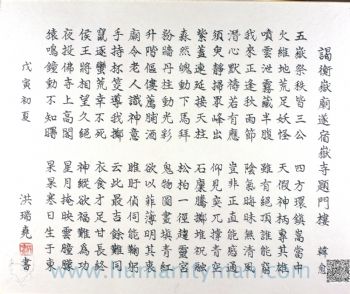 謁衡嶽廟遂宿嶽寺題門樓 韓愈
五嶽祭秩皆三公 四方環鎮嵩當中
火維地荒足妖怪 天假神柄專其雄
噴雲泄霧藏半腹 雖有絕頂誰能窮
我來正逢秋雨節 陰氣晦昧無清風
潛心默禱若有應 豈非正直能感通
須臾靜掃眾峰出 仰見突兀撐青空
紫蓋連延接天柱 石廩騰擲堆祝融
森然魄動下馬拜 松柏一徑趨靈宮
粉牆丹柱動光彩 鬼物圖畫填青紅
升階傴僂薦脯酒 欲以菲薄明其衷
廟令老人識神意 睢盱偵伺能鞠躬
手持杯珓導我擲 云此最吉餘難同
竄逐蠻荒幸不死 衣食才足甘長終
侯王將相望久絕 神縱欲福難為功
夜投佛寺上高閣 星月掩映雲朣朧
猿鳴鐘動不知曙 杲杲寒日生於東
戊寅初夏 洪瑞堯書